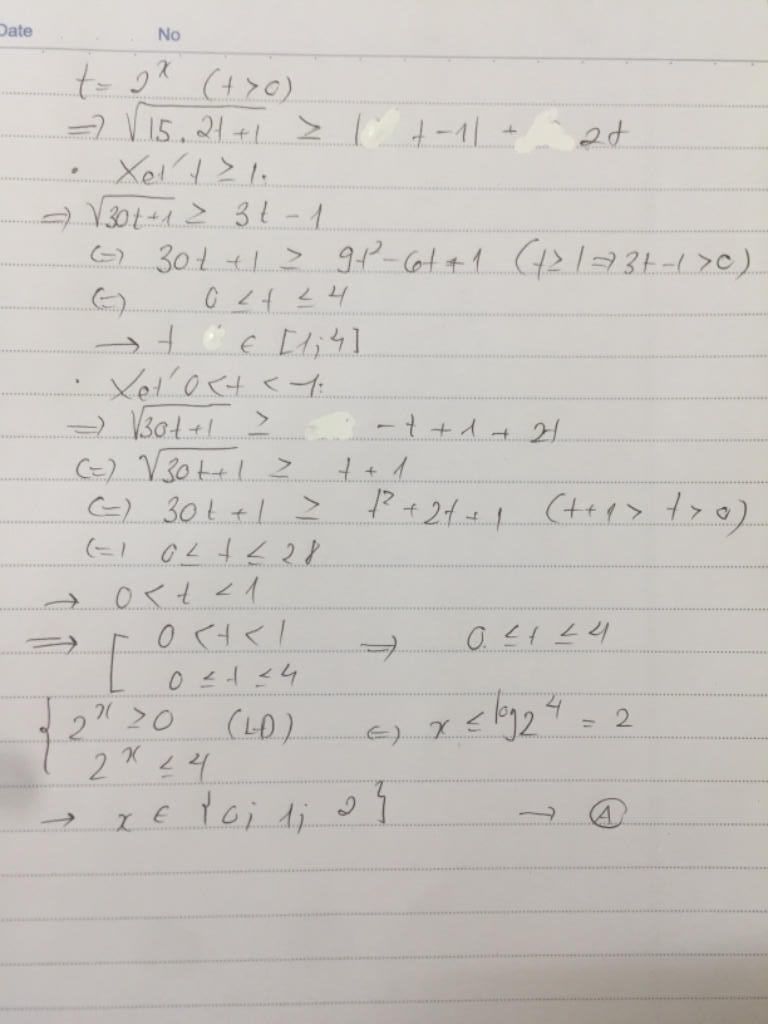 Date No
t = 2^x (t > 0)
=> √(15.2t+1) ≥ |t-1| + 2t
• Xét t ≥ 1:
=> √(30t+1) ≥ 3t - 1
(=) 30t + 1 ≥ 9t² - 6t + 1 (t ≥ 1 => 3t - 1 > 0)
(=) 0 ≤ t ≤ 4
→ t ∈ [1;4]
• Xét 0 < t < 1:
=> √(30t+1) ≥ -t + 1 + 2t
(=) √(30t+1) ≥ t + 1
(=) 30t + 1 ≥ t² + 2t + 1 (t+1 > t > 0)
(=) 0 ≤ t ≤ 28
→ 0 < t < 1
=> [ 0 < t < 1 => 0 ≤ t ≤ 4
0 ≤ t ≤ 4
{ 2^x ≥ 0 (LĐ) (=) x ≤ log2^4 = 2
2^x ≤ 4
→ x ∈ {0; 1; 2} → A